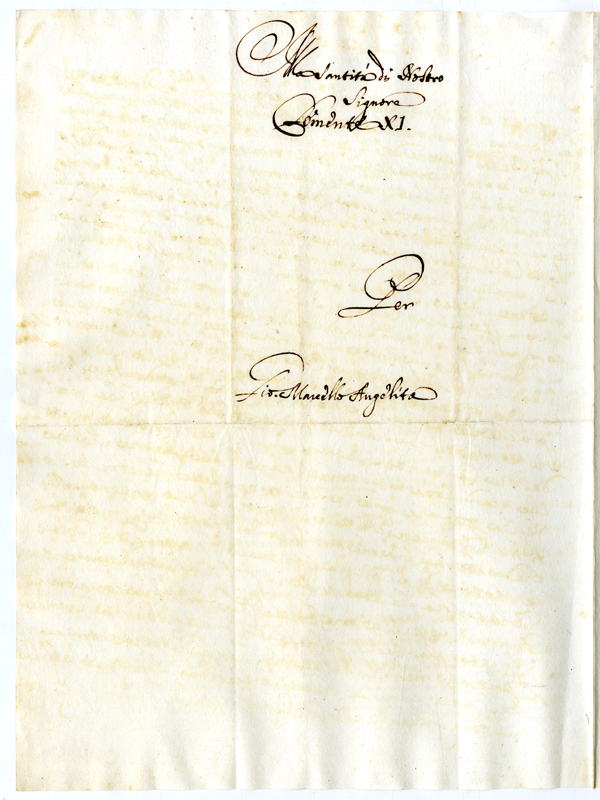 Alla Santità di Nostro
Signore
Clemente XI.
Per
Gio. Marcello Angelita